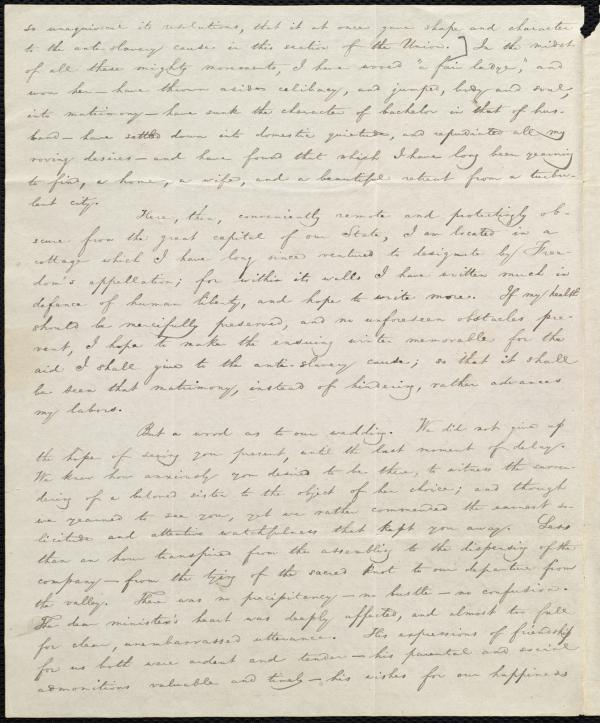 so unequivocal its resolutions, that it at once gave shape and character
to the anti-slavery cause in this section of the Union.] In the midst
of all these mighty movements, I have wooed "a fair ladye," and
won her—have thrown aside celibacy, and jumped, body and soul,
into matrimony—have sunk the character of bachelor in that of hus-
band—have settled down into domestic quietude, and repudiated all my
roving desires—and have found that which I have long been yearning
to find, a home, a wife, and a beautiful retreat from a turbu-
lent city.
Here, then, conveniently remote and protectingly ob-
scure from the great capital of our State, I am located in a
cottage which I have long since ventured to designate by Free-
dom's appellation; for within its walls I have written much in
defence of human liberty, and hope to write more. If my health
should be mercifully preserved, and no unforeseen obstacles pre-
vent, I hope to make the ensuing winter memorable for the
aid I shall give to the anti-slavery cause; so that it shall
be seen that matrimony, instead of hindering, rather advances
my labors.
But a word as to our wedding. We did not give up
the hope of seeing you present, until the last moment of delay.
We knew how anxiously you desired to be there, to witness the surren-
dering of a beloved sister to the object of her choice; and though
we yearned to see you, yet we rather commended the earnest so-
licitude and attentive watchfulness that kept you away. Less
than an hour transpired from the assembling to the dispersing of the
company—from the tying of the sacred knot to our departure from
the valley. There was no precipitancy—no bustle—no confusion.
The dear minister's heart was deeply affected, and almost too full
for clear, unembarrassed utterance. His expressions of friendship
for us both were ardent and tender—his parental and social
admonitions valuable and timely—his wishes for our happiness